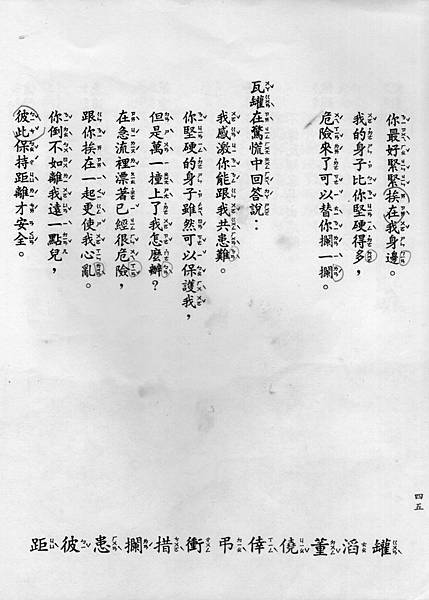 你最好緊緊挨在我身邊。
我的身子比你堅硬得多，
危險來了可以替你攔一攔。
瓦罐在驚慌中回答說：
我感激你能跟我共患難。
你堅硬的身子雖然可以保護我，
但是萬一撞上了我怎麼辦？
在急流裡漂著已經很危險，
跟你挨在一起更使我心亂。
你倒不如離我遠一點兒，
彼此保持距離才安全。
四五
罐滔董僥倖弔衝措攔患彼距